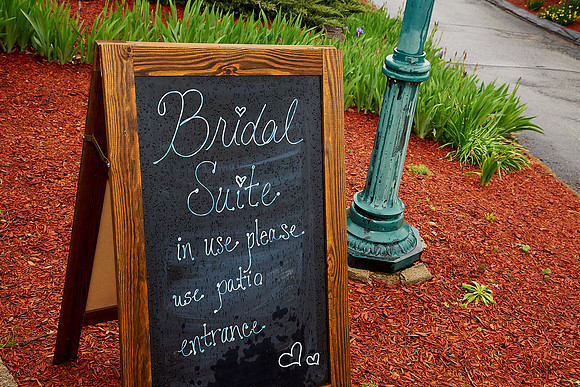 Bridal
Suite
in use please
use patio
entrance